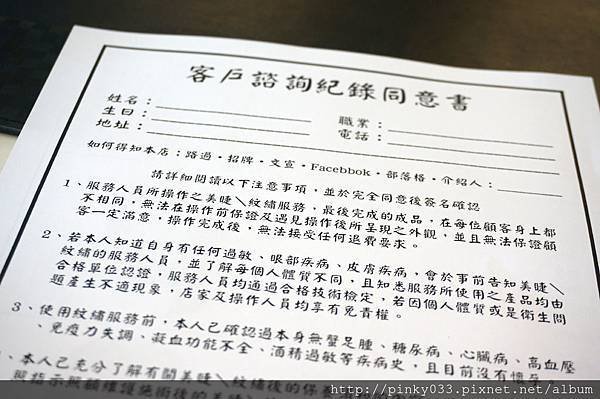 客戶諮詢紀錄同意書
姓名：
職業：
生日：
電話：
地址：
如何得知本店：路過・招牌・文宣・Facebbok・部落格・介紹人：
請詳細閱讀以下注意事項，並於完全同意後簽名確認
1、服務人員所操作之美睫＼紋繡服務，最後完成的成品，在每位顧客身上都
不相同，無法在操作前保證及遇見操作後所呈現之外觀，並且無法保證顧
客一定滿意，操作完成後，無法接受任何退費要求。
2、若本人知道自身有任何過敏、眼部疾病、皮膚疾病，會於事前告知美睫＼
紋繡的服務人員，並了解每個人體質不同，且知悉服務所使用之產品均由
合格單位認證，服務人員均通過合格技術檢定，若因個人體質或是衛生問
題產生不適現象，店家及操作人員均享有免責權。
3、使用紋繡服務前，本人已確認過本身無蟹足腫、糖尿病、心臟病、高血壓
、免疫力失調、凝血功能不全、酒精過敏等疾病史，且目前沒有懷孕。
、本人已充分了解有關美睫＼紋繡後的保養
照指示照顧維護施術後的美睫
http://pinky033.pixnet.net/album